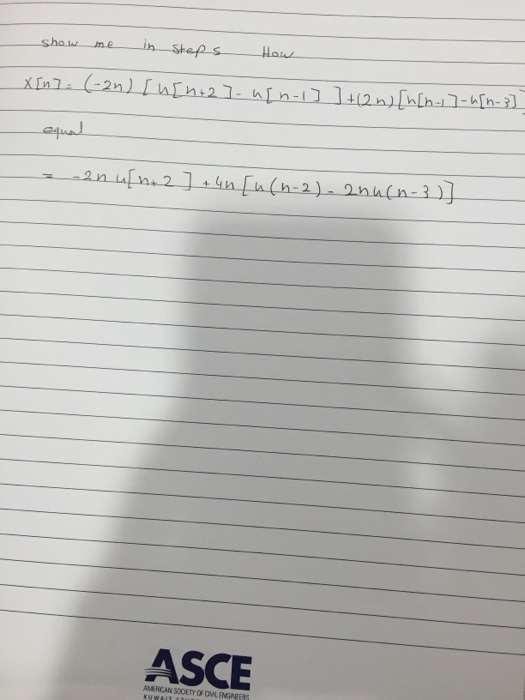 show me in steps How
x[n] = (-2n) [u[n+2] - u[n-1] ] + (2n) [u[n-1] - u[n-3]]
equal
= -2n u[n+2] + 4n [u(n-2) - 2nu(n-3)]
ASCE
AMERICAN SOCIETY OF CIVIL ENGINEERS
KUWAIT